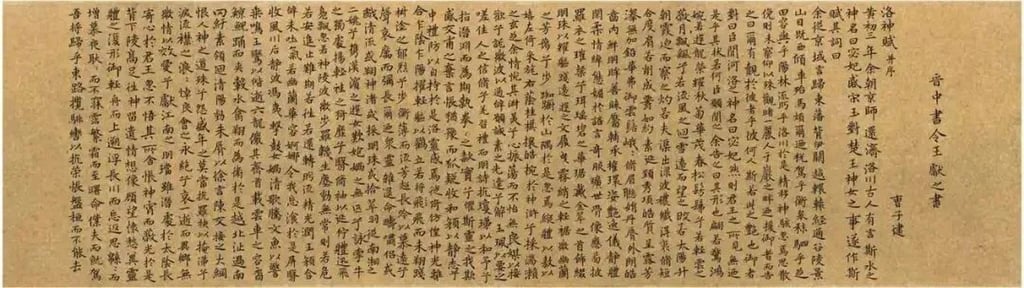 晋中書令王獻之書
洛神賦 并序
曹子建
黄初三年余朝京師還濟洛川古人有言斯水之
神名曰宓妃感宗玉對楚王神女之事遂作斯
賦其詞曰
余從京域言歸東藩背伊闕越轘轅經通谷陵景
山日既西傾車殆馬煩爾迺税駕乎蘅皋秣駟乎芝
田容與乎陽林流眄乎洛川於是精移神駭忽焉思散
俯則未察仰以殊觀睹一麗人于巖之畔迺援御者而告
之曰爾有覿於彼者乎彼何人斯若此之艷也御者
對曰臣聞河洛之神名曰宓妃然則君王之所見無迺
是乎其狀若何臣願聞之余告之曰其形也翩若驚鴻
婉若遊龍榮曜秋菊華茂春松髣髴兮若輕雲
之蔽月飄飖兮若流風之迴雪遠而望之皎若太陽升
朝霞迫而察之灼若夫渠出渌波穠纖得衷脩短
合度肩若削成腰如約素延頸秀項皓質呈露芳
澤無加鉛華弗御雲髻峩峩脩眉聯娟丹脣外朗皓
齒内鮮明眸善睞靨輔承權瓌姿艷逸儀靜體
閑柔情綽態媚於語言奇服曠世骨像應圖披
羅衣之璀粲兮珥瑶碧之華琚戴金翠之首飾綴
明珠以耀軀踐遠遊之文履曳霧綃之輕裾微幽蘭
之芳藹兮步踟躕於山隅於是忽焉縱體以遨以
嬉左倚采旄右蔭桂旗攘皓腕於神滸兮採湍瀨
之玄芝余情悦其淑美兮心振蕩而不怡無良媒以接
歡兮託微波以通辭願誠素之先達兮解玉珮以要之
嗟佳人之信脩兮羌習禮而明詩抗瓊珶以和予兮
指潛淵而為期執眷眷之款實兮懼斯靈之我欺
感交甫之棄言悵猶豫而狐疑收和顔以靜志兮
申禮防以自持於是洛靈感焉徙倚仿偟神光離
合乍陰乍陽擢輕軀以鶴立若將飛而未翔踐
椒塗之郁烈兮步蘅薄而流芳超長吟以慕遠兮
聲哀厲而彌長爾迺衆靈雜遝命疇嘯侣或
戲清流或翔神渚或採明珠或拾翠羽從南湘之
二妃兮攜漢濱之遊女歎匏媧之無匹詠牽牛
之獨處揚輕袿之猗靡翳脩袖以延佇體迅飛
鳧飄忽若神陵波微步羅襪生塵動無常則若危
若安進止難期若往若還轉眄流精光潤玉顔含
辭未吐氣若幽蘭華容婀娜令我忘湌於是屏翳
收風川后靜波馮夷擊鼓女媧清歌騰文魚以警
乘鳴玉鸞以偕逝六龍儼其齊首載雲車之容裔
鯨鯢踊而夾轂水禽翔而為衛於是越北沚過南
岡紆素領迴清陽動朱脣以徐言陳交接之大綱
恨人神之道殊怨盛年之莫當抗羅袂以掩涕兮
淚流襟之浪浪悼良會之永絶兮哀一逝而異鄉無
微情以效愛兮獻江南之明璫雖潛處於太陰長
寄心於君王忽不悟其所舍悵神宵而蔽光於是
背下陵高足往神留遺情想像顧望懷愁冀靈
體之復形御輕舟而上遡浮長川而忘返思緜緜而
增慕夜耿耿而不寐霑繁霜而至曙命僕夫而就駕
吾將歸乎東路攬騑轡以抗策悵盤桓而不能去